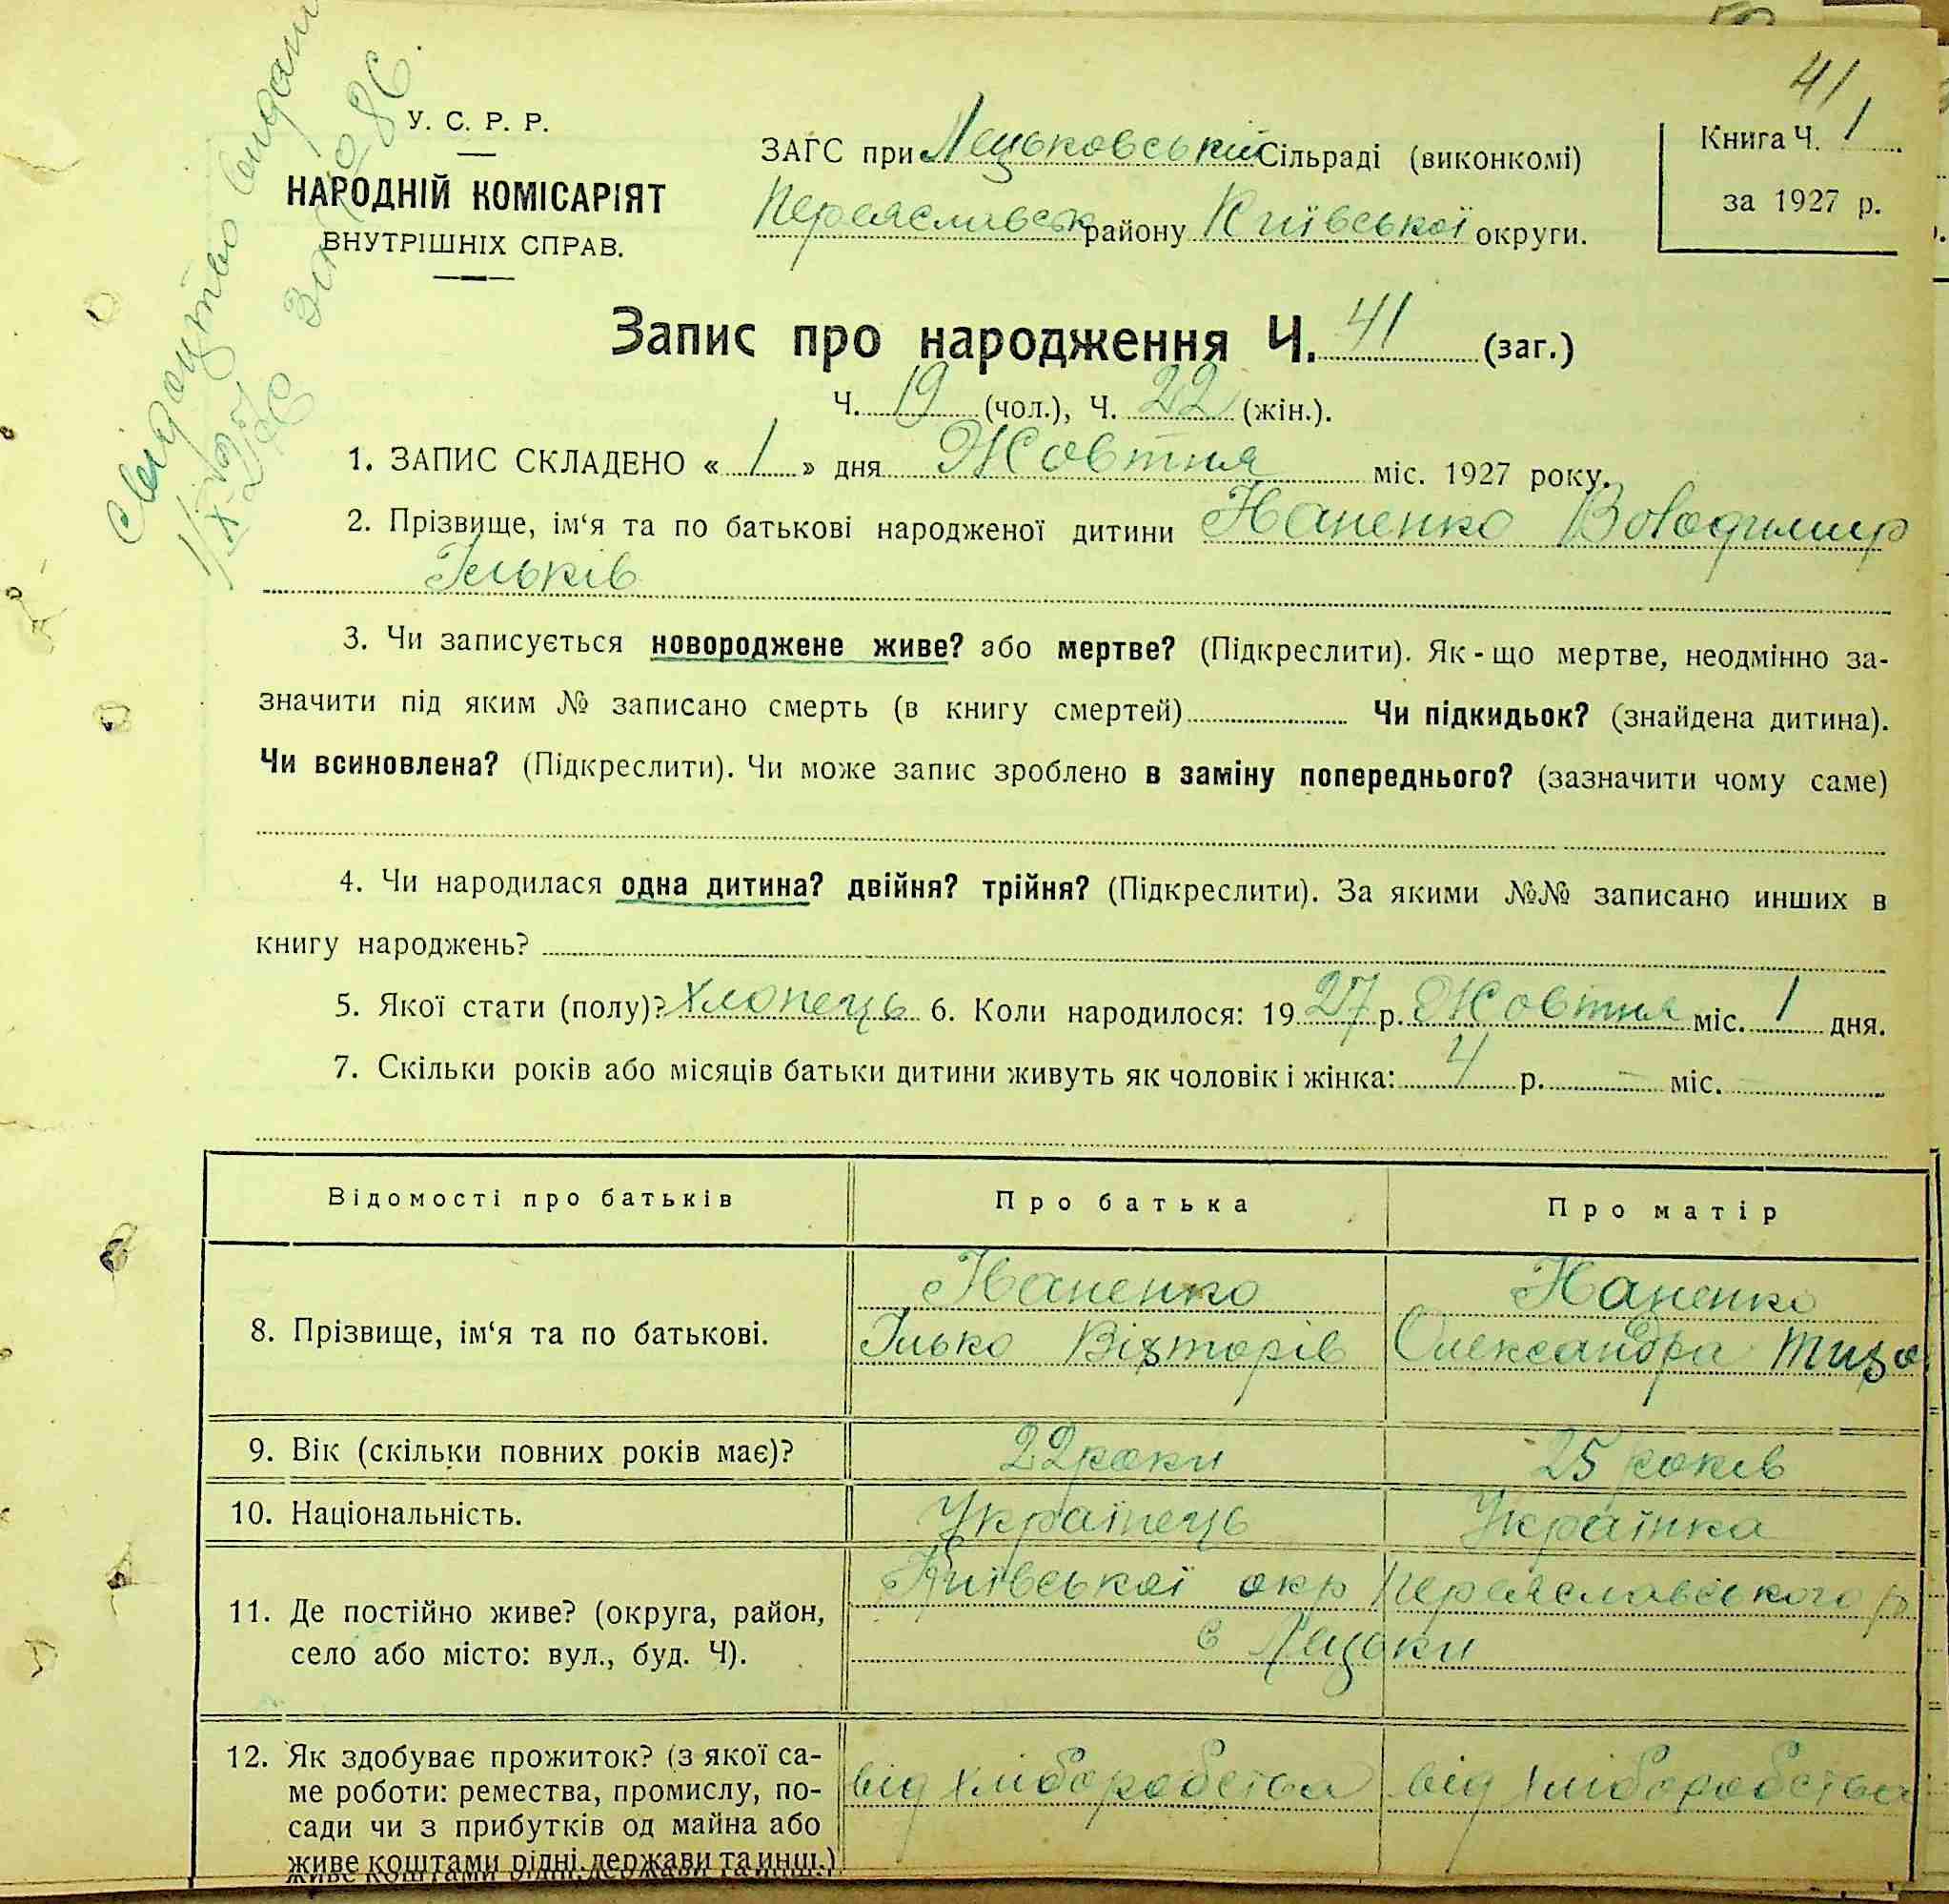 41
У. С. Р. Р.
НАРОДНІЙ КОМІСАРІЯТ
ВНУТРІШНІХ СПРАВ.
ЗАГС при Лецьковській Сільраді (виконкомі)
Переяславськ району Київської округи.
Книга Ч. 1
за 1927 р.
Свидоцтво
Запис про народження Ч. 41 (заг.)
Ч. 19 (чол.), Ч. 22 (жін.).
1. ЗАПИС СКЛАДЕНО « 1 » дня Жовтня міс. 1927 року.
2. Прізвище, ім‘я та по батькові народженої дитини Наненко Володимир
Ільків
3. Чи записується новороджене живе? або мертве? (Підкреслити). Як-що мертве, неодмінно за-
значити під яким № записано смерть (в книгу смертей) Чи підкидьок? (знайдена дитина).
Чи всиновлена? (Підкреслити). Чи може запис зроблено в заміну попереднього? (зазначити чому саме)
4. Чи народилася одна дитина? двійня? трійня? (Підкреслити). За якими №№ записано инших в
книгу народжень?
5. Якої стати (полу)? хлопець 6. Коли народилося: 19 27 р. Жовтня міс. 1 дня.
7. Скільки років або місяців батьки дитини живуть як чоловік і жінка: 4 р. – міс. –
Відомості про батьків Про батька Про матір
8. Прізвище, ім‘я та по батькові.
Наненко Наненко
Ілько Вікторів Олександра
9. Вік (скільки повних років має)? 22 роки 25 років
10. Національність. Українець Українка
11. Де постійно живе? (округа, район,
село або місто: вул., буд. Ч).
Київської окр Переяславського р
с Лецьки
12. Як здобуває прожиток? (з якої са-
ме роботи: ремества, промислу, по-
сади чи з прибутків од майна або
живе коштами рідні, держави та инш.)
від хліборобства від хліборобства